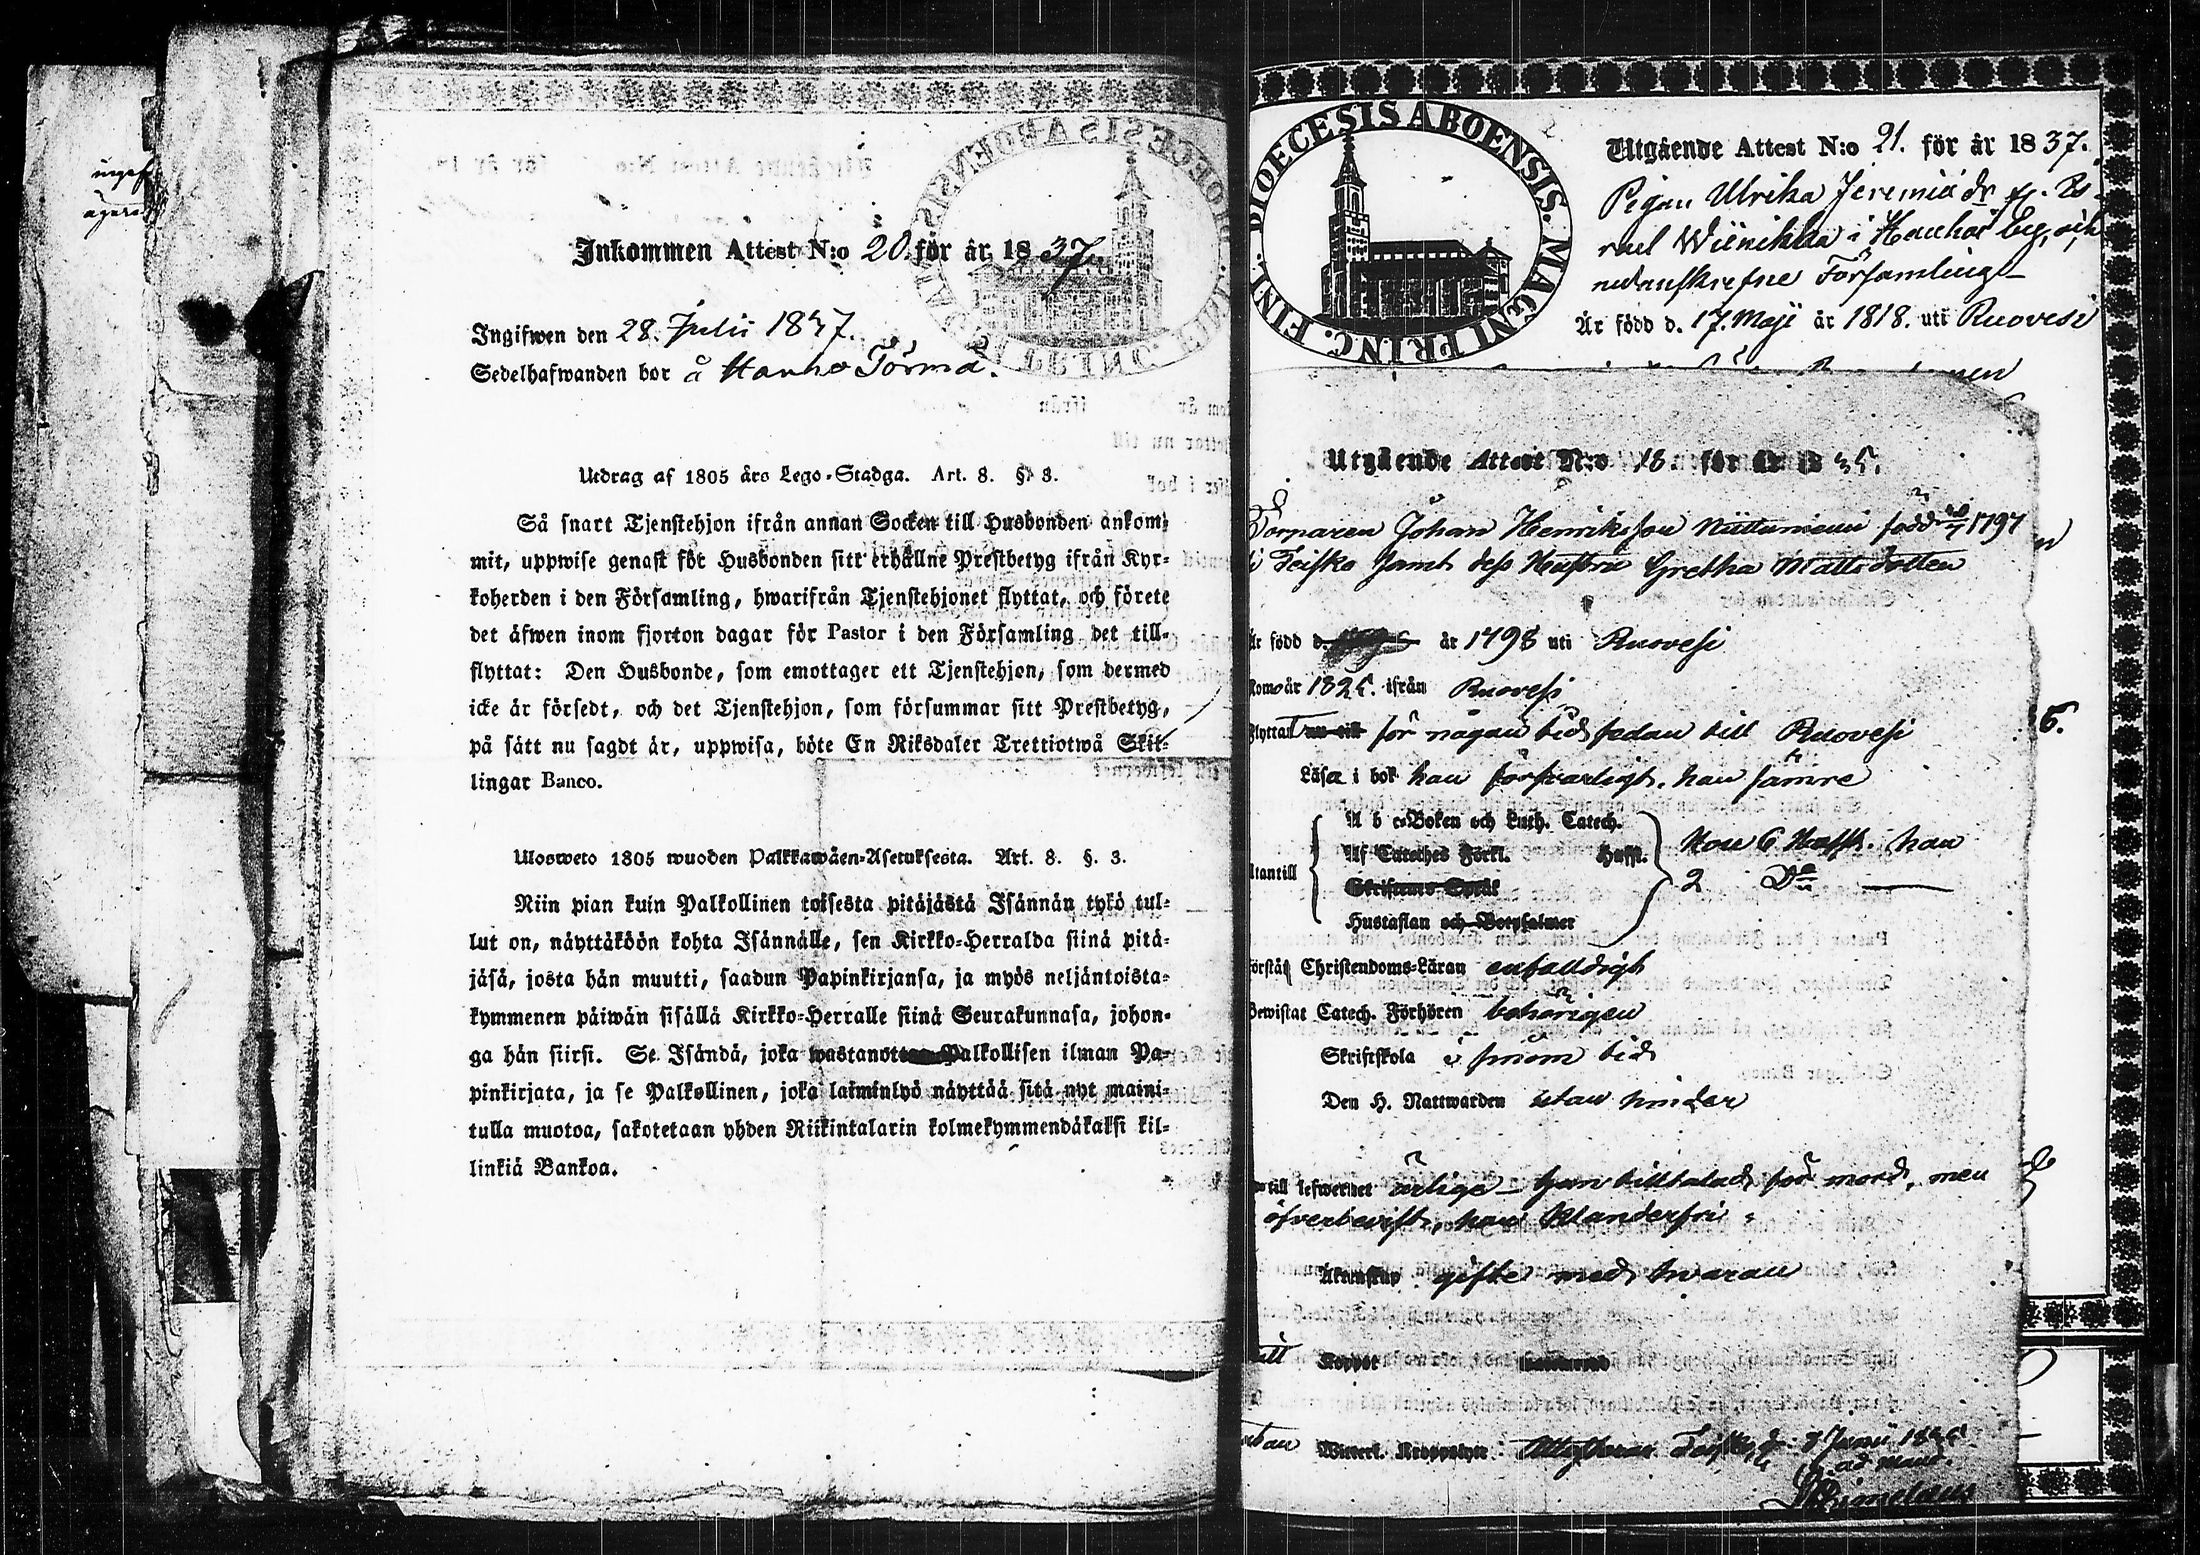 Inkommen Attest N:o 20. för år 1837.
Ingifwen den 28. Julii 1837.
Sedelhafwanden bor å Hanho Törmä.
Utdrag af 1805 års Lego-Stadga. Art. 8. §. 3.
Så snart Tjenstehjon ifrån annan Socken till Husbonden ankom-
mit, uppwise genast för Husbonden sitt erhållne Prestbetyg ifrån Kyr-
koherden i den Församling, hwarifrån Tjenstehjonet flyttat, och förete
det äfwen inom fjorton dagar för Pastor i den Församling det till-
flyttat: Den Husbonde, som emottager ett Tjenstehjon, som dermed
icke är försedt, och det Tjenstehjon, som försummar sitt Prestbetyg,
på sätt nu sagdt är, uppwisa, böte En Riksdaler Trettiotwå Skil-
lingar Banco.
Ulosweto 1805 wuoden Palkkawäen-Asetuksesta. Art. 8. §. 3.
Niin pian kuin Palkollinen toisesta pitäjästä Isännän tykö tul-
lut on, näyttäköön kohta Isännälle, sen Kirkko-Herralda siinä pitä-
jäsä, josta hän muutti, saadun Papinkirjansa, ja myös neljäntoista-
kymmenen päiwän sisällä Kirkko-Herralle siinä Seurakunnasa, johon-
ga hän siirsi. Se Isändä, joka wastanottaa Palkollisen ilman Pa-
pinkirjata, ja se Palkollinen, joka laiminlyö näyttää sitä nyt maini-
tulla muotoa, sakotetaan yhden Riikintalarin kolmekymmendäkaksi kil-
linkiä Bankoa.
DIOECESIS ABOENSIS. MAGNI PRINC. FINL.
Utgående Attest N:o 21. för år 1837.
Pigan Ulrika Jeremiæ dr fr.
Wiinikka i Hauho by, och
nedanskrefne Församling
Är född d. 17. Maji år 1818. uti Ruovesi
Utgående Attest N:o 18. för år 1835.
Torparen Johan Henriksson Niittuniemi född 1797
i Teisko samt dess Hustru Gretha Mattsdotter
är född d. år 1798 uti Ruovesi
Kom år 1825. ifrån Ruovesi
Flyttat nu till för någon tid sedan till Ruovesi
Läsa i bok han försvarligt, hon sämre
A b c-Boken och Luth. Catech.
Af Catech Förkl. Huffst.
Skriftens Språk
Hustaflan och Botpsalmer
Utantill Hon 6 Huffst. han
2 Do
Förstå Christendoms-Läran enfalldigt
Bewistat Catech. Förhören behörigen
Skriftskola i sinom tid
Den H. Nattwarden utan hinder
till lefwernet ärlige - han tilltalad för mord, men
öfverbevist, hon klanderfri
Äktenskap gifte med hwaran
Koppor
Wittert. Kroppslyte Attesterar Teisko d: Junii 1835
ad mand.